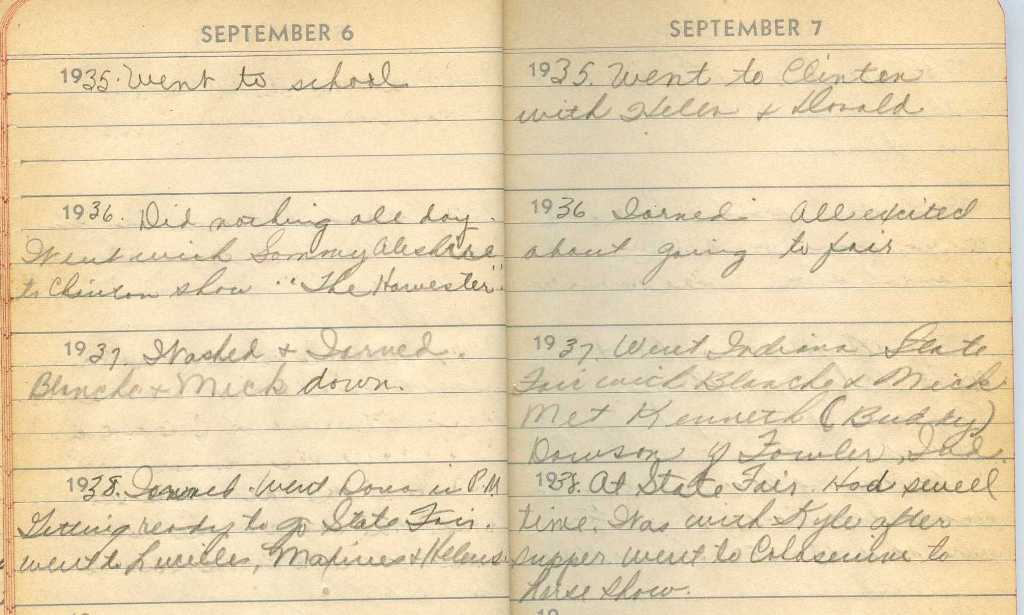 SEPTEMBER 6
1935. Went to school
1936. Did nothing all day.
Went with Sammy Aleshire
to Clinton show "The Harvester".
1937. Washed & Iorned.
Blanche & Mick down.
1938. Iorned. Went Down in P.M
Getting ready to go State Fair.
went to Lucilles, Maxines & Helens
SEPTEMBER 7
1935. Went to Clinton
with Helen & Donald.
1936 Iorned. All excited
about going to fair
1937. Went Indiana State
Fair with Blanche & Mick
Met Kenneth (Buddy)
Dawson of Fowler, Ind.
1938. At State Fair. Had swell
time. Was with Kyle after
supper went to Colasenim to
Horse show.
19